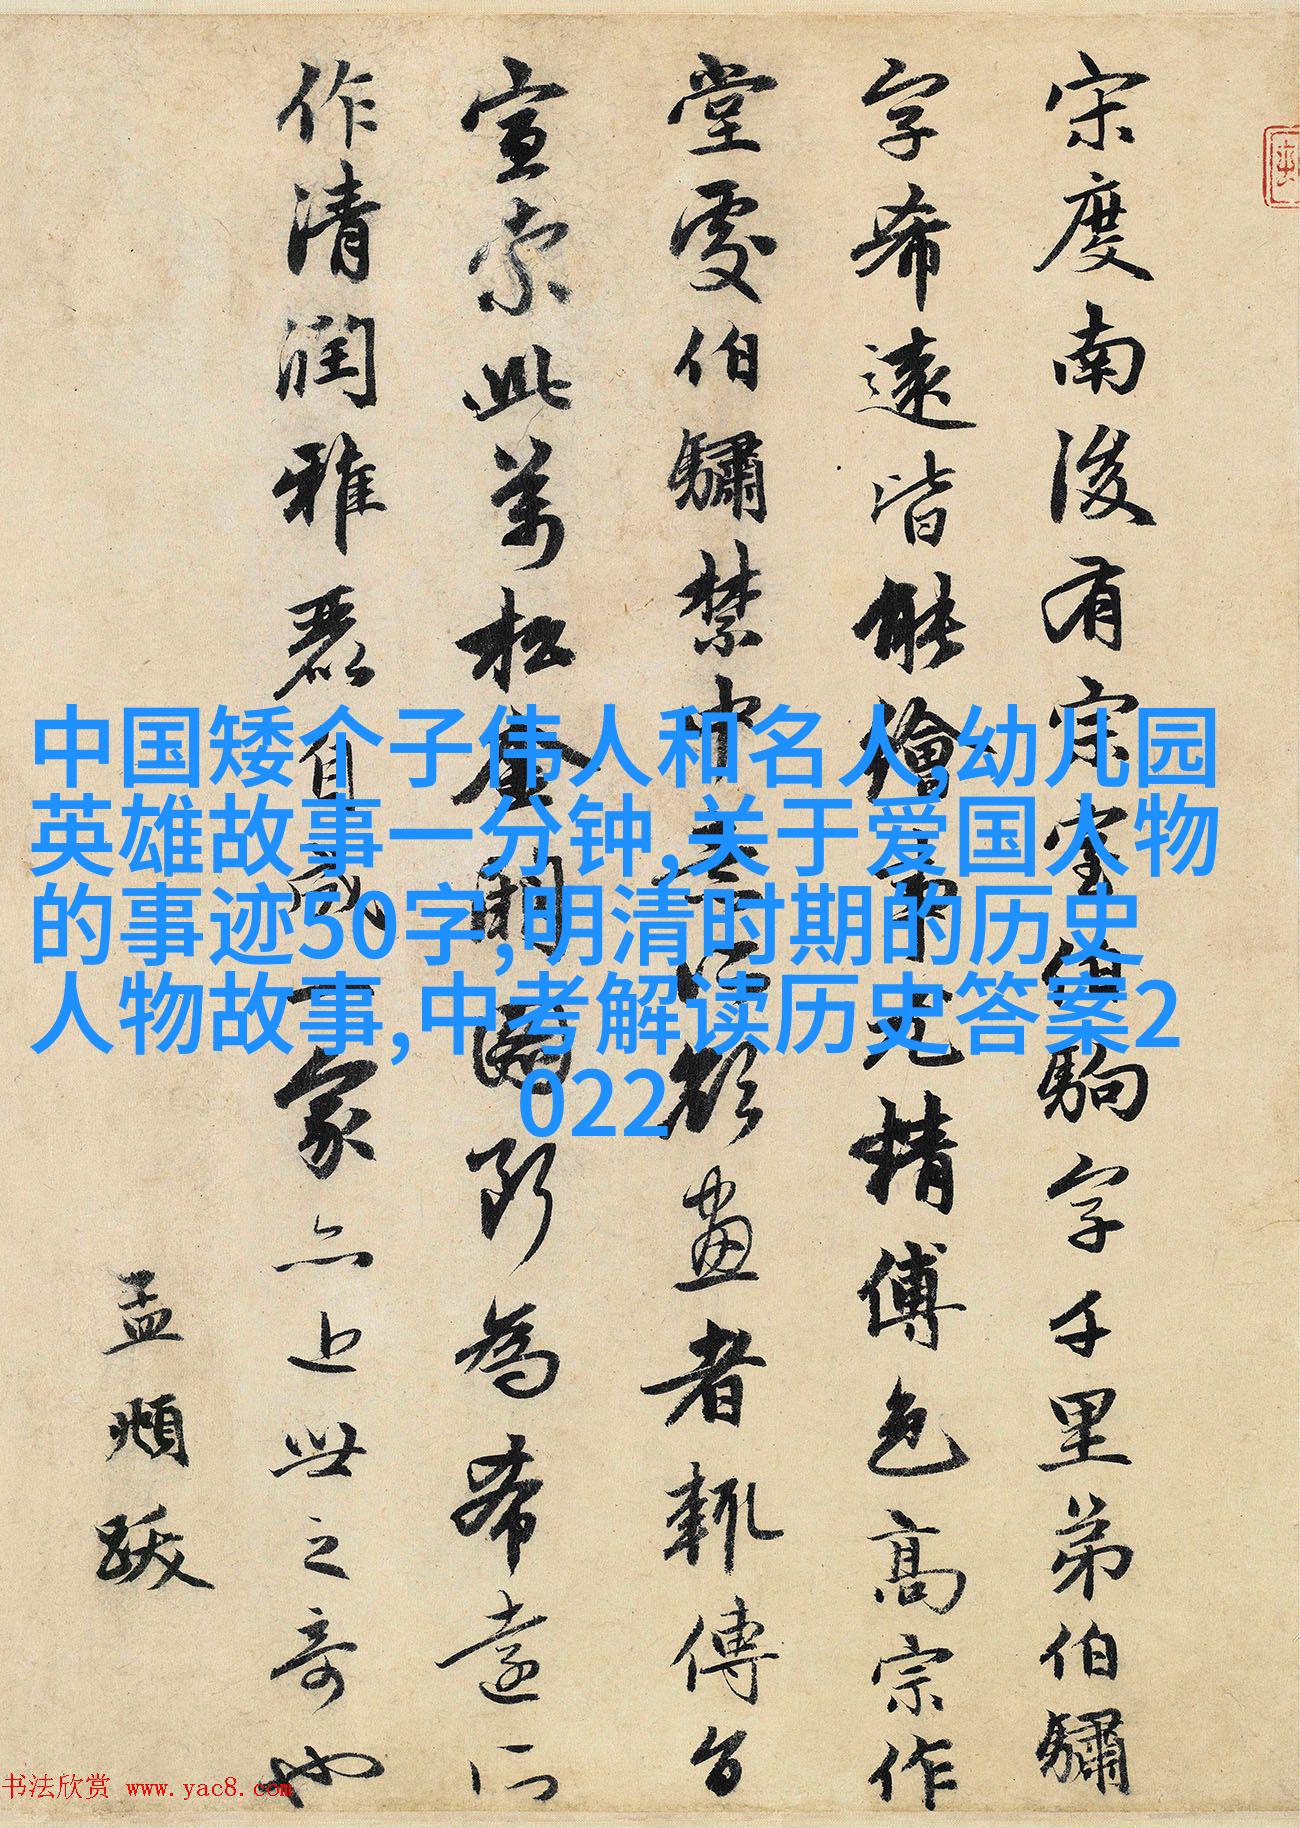 宋度南後有宗室伯駒字千里弟伯驌
字希遠皆能繪事尤精傅色高宗作
堂處伯驌禁中意所欲畫者輒傳旨
宣索此萬松金闕圖斷為希遠所
作清潤雅麗自成一家亦近世之奇也
孟頫跋
中国矮个子伟人和名人,幼儿园
英雄故事一分钟,关于爱国人物
的事迹50字,明清时期的历史
人物故事,中考解读历史答案2
022
书法欣赏 www.yac8.com